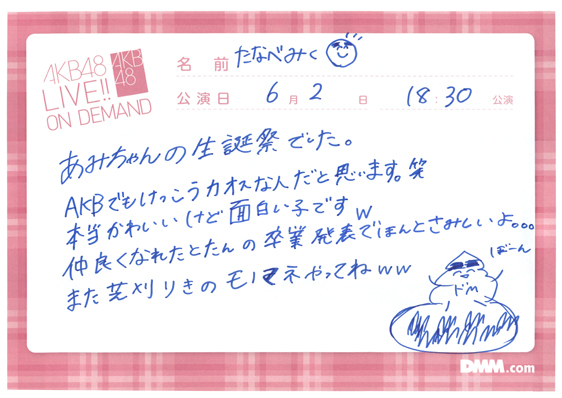 AKB48
LIVE!!
ON DEMAND
AKB
48
名 前 たなべみく
公演日 6月2日 18:30 公演
あみちゃんの生誕祭でした。
AKBでもけっこうカオスな人だと思います。笑
本当かわいいけど面白い子ですw
仲良くなれたとたんの卒業発表でほんとさみしいよ。。。
また芝刈りきのモノマネやってねww
ばーん
ドM
DMM.com